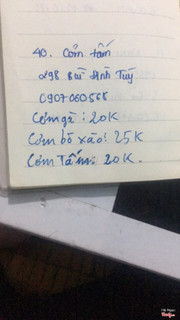 40. Cơm tấm
298 Bùi Đình Túy
0907060568
Cơm gà: 20K
Cơm bò xào: 25K
Cơm Tấm: 20K.